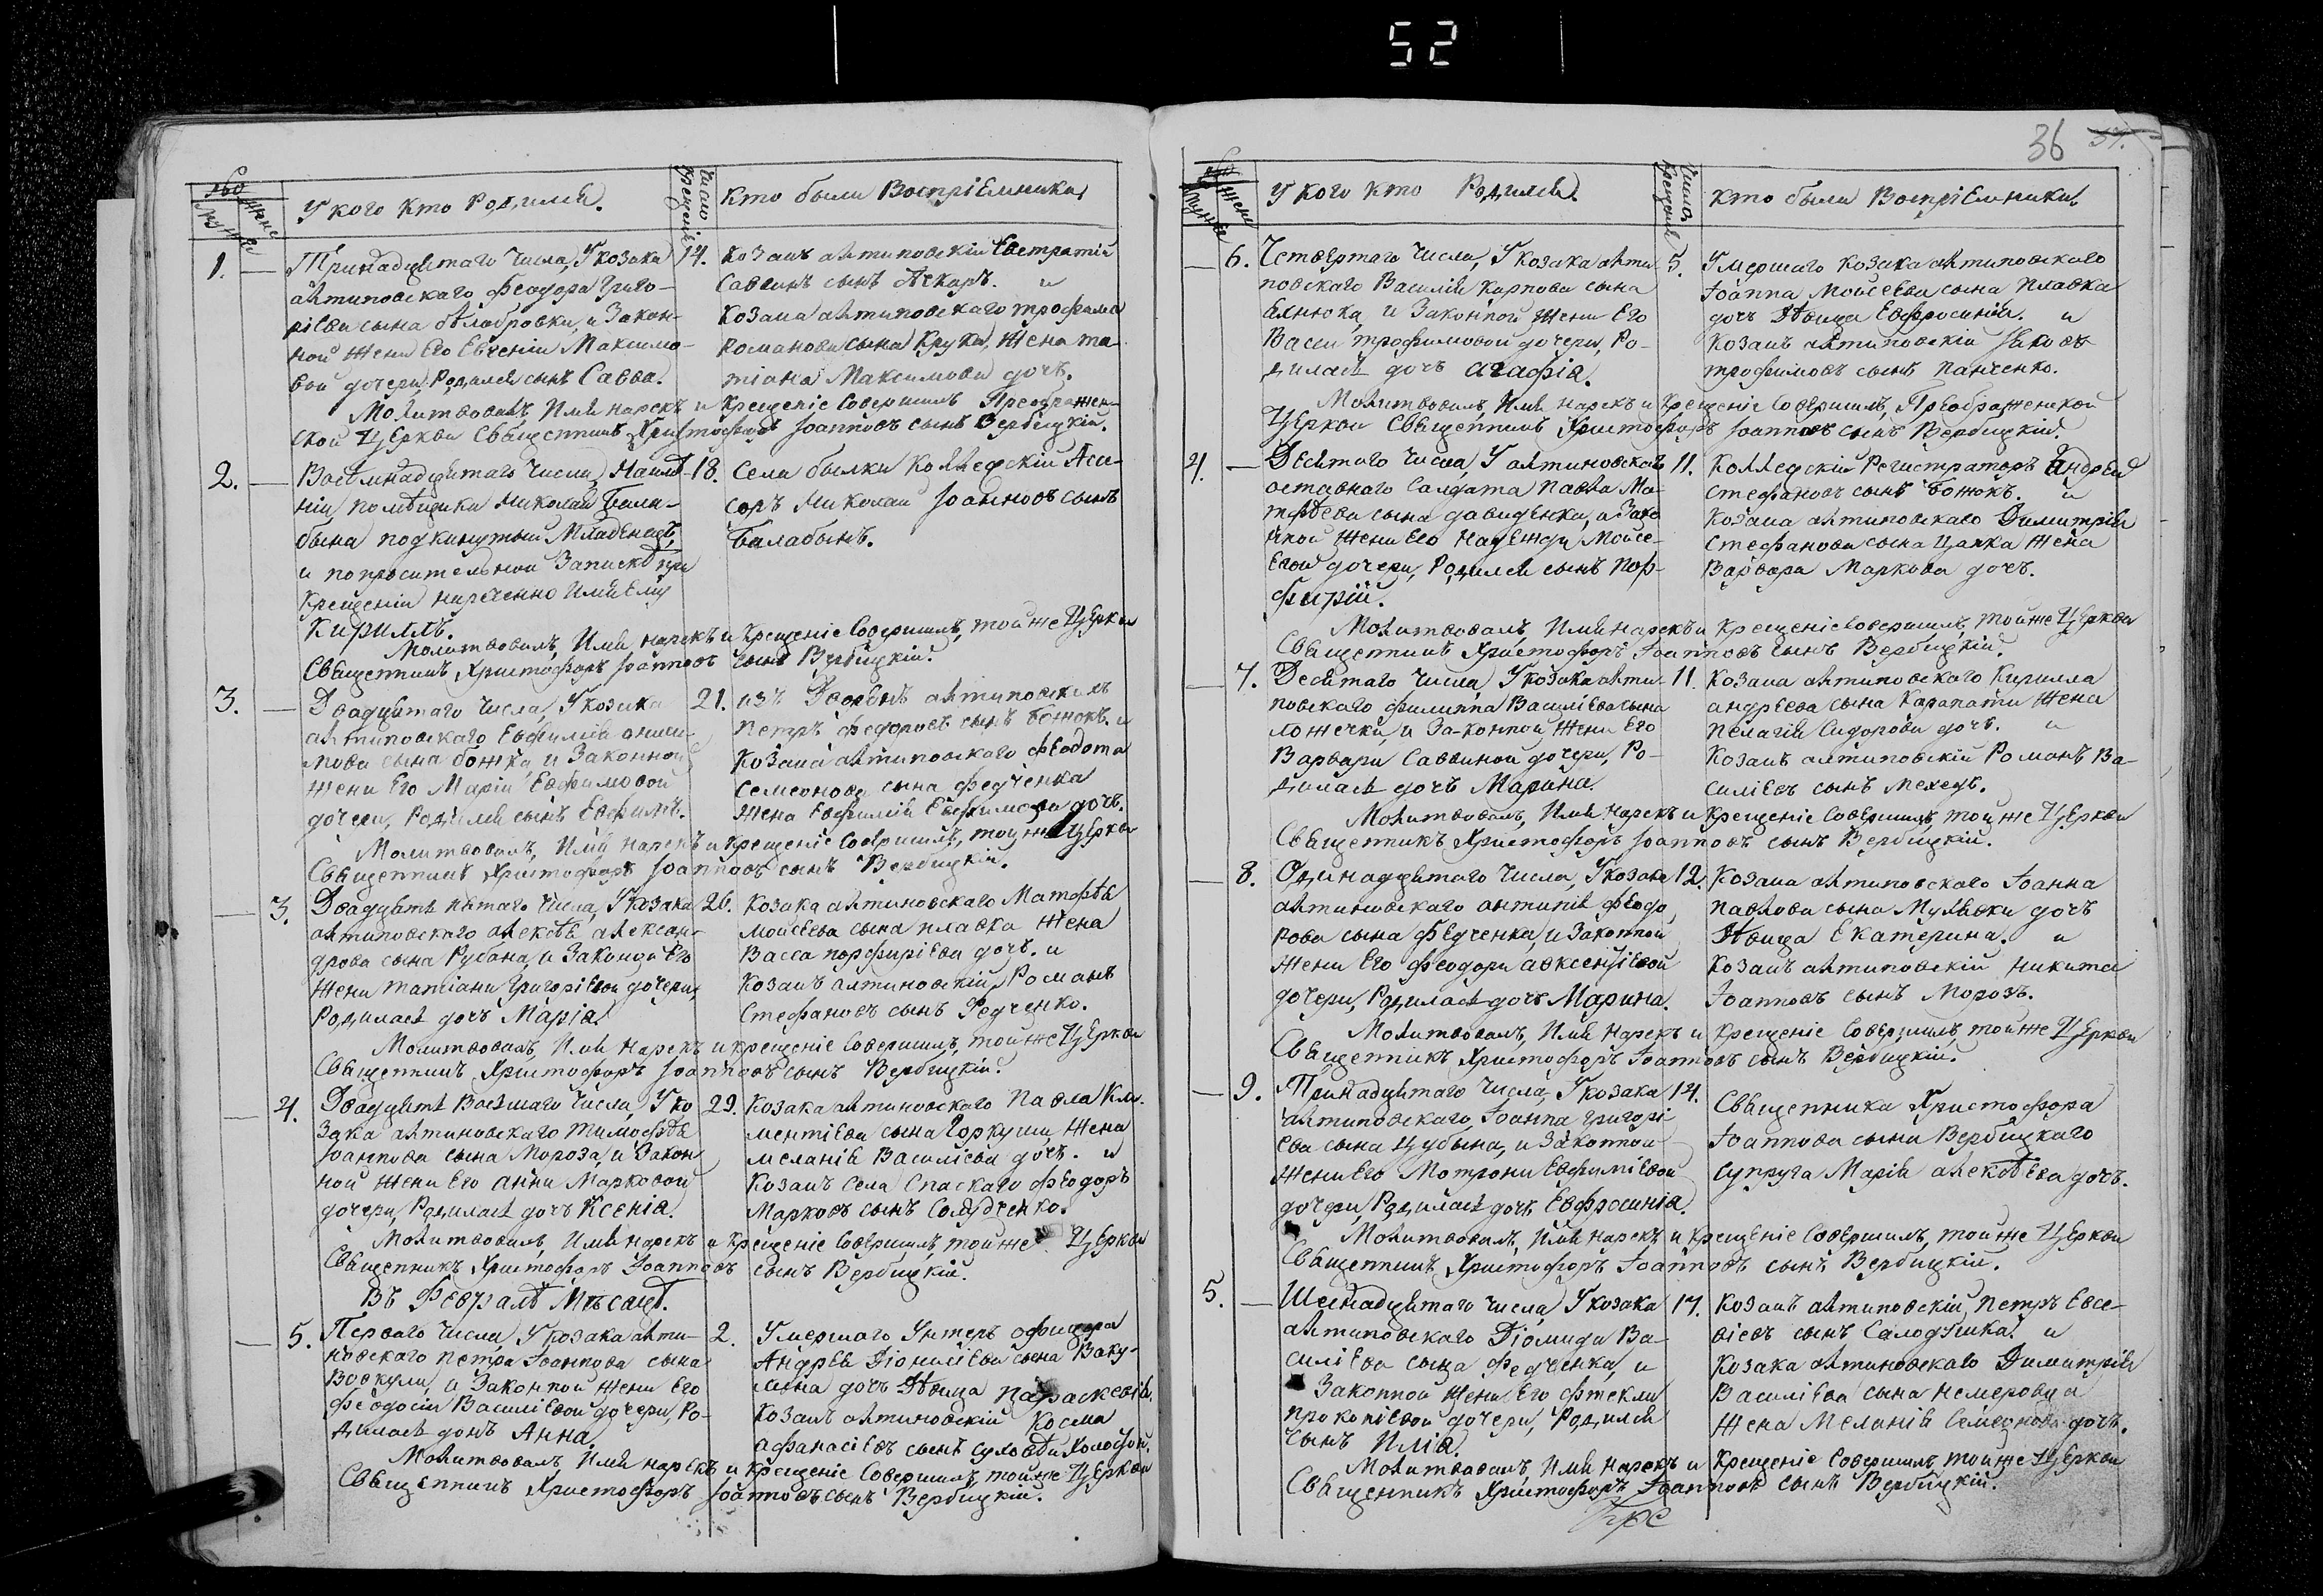 52
36 37.
No
Мужие Женс
У кого кто Родился.
Число Крещенія
Кто были Воспріемники,
1. — Тринадцятаго Числа, У козака
антиповскаго Феодора Григо-
ріева сына бѣлобровки, и Закон-
ной жены Его Евгеніи Максимо-
вой дочери, Родился сынъ Савва.
14. Козакъ антиповскій Евстратій
Саввинъ сынъ Аскаръ. и
Козака антиповскаго трофима
Романова сына Крука, жена та-
тіана Максимова дочъ.
Молитвовалъ, Имя нарекъ и Крещеніе Совершилъ Преображен-
ской Церкви Священникъ Христофоръ Іоанновъ сынъ Вербицкій.
2. — Восѣмнадцятаго Числа,
помѣщика Николая Бала-
бына подкинутый Младенецъ,
и попросительной Запискѣ при
Крещеніи наречено Имя Ему
Кириллъ.
18. Села былки Коллежскій Асе-
соръ Николай Іоанновъ сынъ
Балабынъ.
Молитвовалъ, Имя нарекъ и Крещеніе Совершилъ, тойже Церкви
Священникъ Христофоръ Іоанновъ сынъ Вербицкій.
3. — Двадцятаго Числа, У козака
антиповскаго Евфимія ониси-
мова сына божка, и Законной
жены Его Маріи Евфимовой
дочери, Родился сынъ Ефимъ.
21. изъ Дворянъ антиповскихъ
Петръ Федоровъ сынъ Божокъ. и
Козака антиповскаго Феодота
Семеонова сына Федченка
жена Евфимія Евфимова дочъ.
Молитвовалъ, Имя нарекъ и Крещеніе Совершилъ, тойже Церкви
Священникъ Христофоръ Іоанновъ сынъ Вербицкій.
— 3. Двадцять пятаго Числа, У козака
антиповскаго Алексѣя Алексан-
дрова сына Рубана, и Законой Его
жены татіаны Григоріевой дочери,
Родилася дочъ Марія.
26. Козака антиповскаго Матфѣя
Мойсеева сына плавка жена
Васса порфиріева дочъ. и
Козакъ антиповскій, Романъ
Стефановъ сынъ Федченко.
Молитвовалъ, Имя нарекъ и крещеніе Совершилъ, тойже Церкви
Священникъ Христофоръ Іоанновъ сынъ Вербицкій.
— 4. Двадцять Восмаго Числа, У ко
Зака антиповскаго тимофѣя
Іоаннова сына Мороза, и Закон
ной жены Его Анны Марковой
дочери, Родилася дочъ Ксенія.
29. Козака антиповскаго Павла Кли-
ментіева сына Горкуши, жена
меланія Василіева дочъ. и
Козакъ Села Спаскаго Феодоръ
Марковъ сынъ Солудченко.
Молитвовалъ, Имя нарекъ и Крещеніе Совершилъ, тойже Церкви
Священникъ Христофоръ Іоанновъ сынъ Вербицкій.
Въ Февралѣ Мѣсяцѣ.
— 5. Перваго Числа, У козака анти-
повскаго петра Іоаннова сына
Вовкулы, и Законной жены Его
Феодосіи Василіевой дочери, Ро-
дилася дочъ Анна.
2. Умершаго Унтеръ офицера
Андрея Діонисіева сына Ваку-
дочъ Дѣвица параскевія.
Козакъ антиповскій Косма
афанасіевъ сынъ
Молитвовалъ, Имя нарекъ и Крещеніе Совершилъ, тойже Церкви
Священникъ Христофоръ Іоанновъ сынъ Вербицкій.
No
Мужие Жены
У кого кто Родился.
Число Крещенія
Кто были Воспріемники.
— 6. Четвертаго Числа, У козака анти
повскаго Василія Карпова сына
Елнюка, и Законной жены Его
Вассы трофимовой дочери, Ро-
дилася дочъ агафія.
5. Умершаго козака антиповскаго
Іоанна Мойсеева сына плавка
дочъ Дѣвица Евфросинія. и
Козакъ антиповскій Яковъ
трофимовъ сынъ панченко.
Молитвовалъ, Имя нарекъ и Крещеніе Совершилъ, Преображенской
Церкви Священникъ Христофоръ Іоанновъ сынъ Вербицкій.
4. — Десятаго Числа, У антиповскаго
оставнаго Салдата павла Ма-
тфѣева сына давиденка, и Зако
нной жены Его Надежды Мойсе-
евой дочери, Родился сынъ пор-
фирій.
11. Коллежскій Регистраторъ Андрей
Стефановъ сынъ Божокъ. и
Козака антиповскаго Димитрія
Стефанова сына Цапка жена
Варвара Маркова дочъ.
Молитвовалъ, Имя нарекъ и Крещеніе Совершилъ, тойже Церкви
Священникъ Христофоръ Іоанновъ сынъ Вербицкій.
— 7. Десятаго Числа, У козака анти-
повскаго филиппа Василіева сына
ложечки, и Законной жены Его
Варвары Саввиной дочери, Ро-
дилася дочъ Марина.
11. Козака антиповскаго Кирилла
андреева сына Карапаты жена
пелагія Сидорова дочъ. и
Козакъ антиповскій Романъ Ва-
силіевъ сынъ мехедъ.
Молитвовалъ, Имя нарекъ и Крещеніе Совершилъ, тойже Церкви
Священникъ Христофоръ Іоанновъ сынъ Вербицкій.
— 8. Одинаддятаго Числа, У козака
антиповскаго антипія феодо
рова сына Федченка, и Законной
жены Его Феодоры авксентіевой
дочери, Родилася дочъ Марина.
12. Козака антиповскаго Іоанна
павлова сына Мулявки дочъ
Дѣвица Екатерина. и
Козакъ антиповскій никита
Іоанновъ сынъ Морозъ.
Молитвовалъ, Имя нарекъ и Крещеніе Совершилъ, тойже Церкви
Священникъ Христофоръ Іоанновъ сынъ Вербицкій.
— 9. Принадцятаго Числа, У козака
антиповскаго, Іоанна григорі
ева сына Цубына, и Законной
жены Его Мотроны Евфиміевой
дочери, Родилася дочъ Евфросинія.
14. Священника Христофора
Іоаннова сына Вербицкаго
супруга Марія алексѣева дочъ.
Молитвовалъ, Имя нарекъ и крещеніе Совершилъ, тойже Церкви
Священникъ Христофоръ Іоанновъ сынъ Вербицкій.
5. — Шеснадцятаго Числа, У козака
антиповскаго Діомида Ва-
силіева сына Федченка, и
Законной жены Его Фтеклы
прокопіевой дочери, Родился
сынъ Илія.
17. Козакъ антиповскій, петръ Евсе-
віевъ сынъ Салодушка. и
Козака антиповскаго Димитрія
Василіева сына немеровца
жена Меланія Семеонова дочъ.
Молитвовалъ, Имя нарекъ и Крещеніе Совершилъ, тойже Церкви
Священникъ Христофоръ Іоанновъ сынъ Вербицкій.